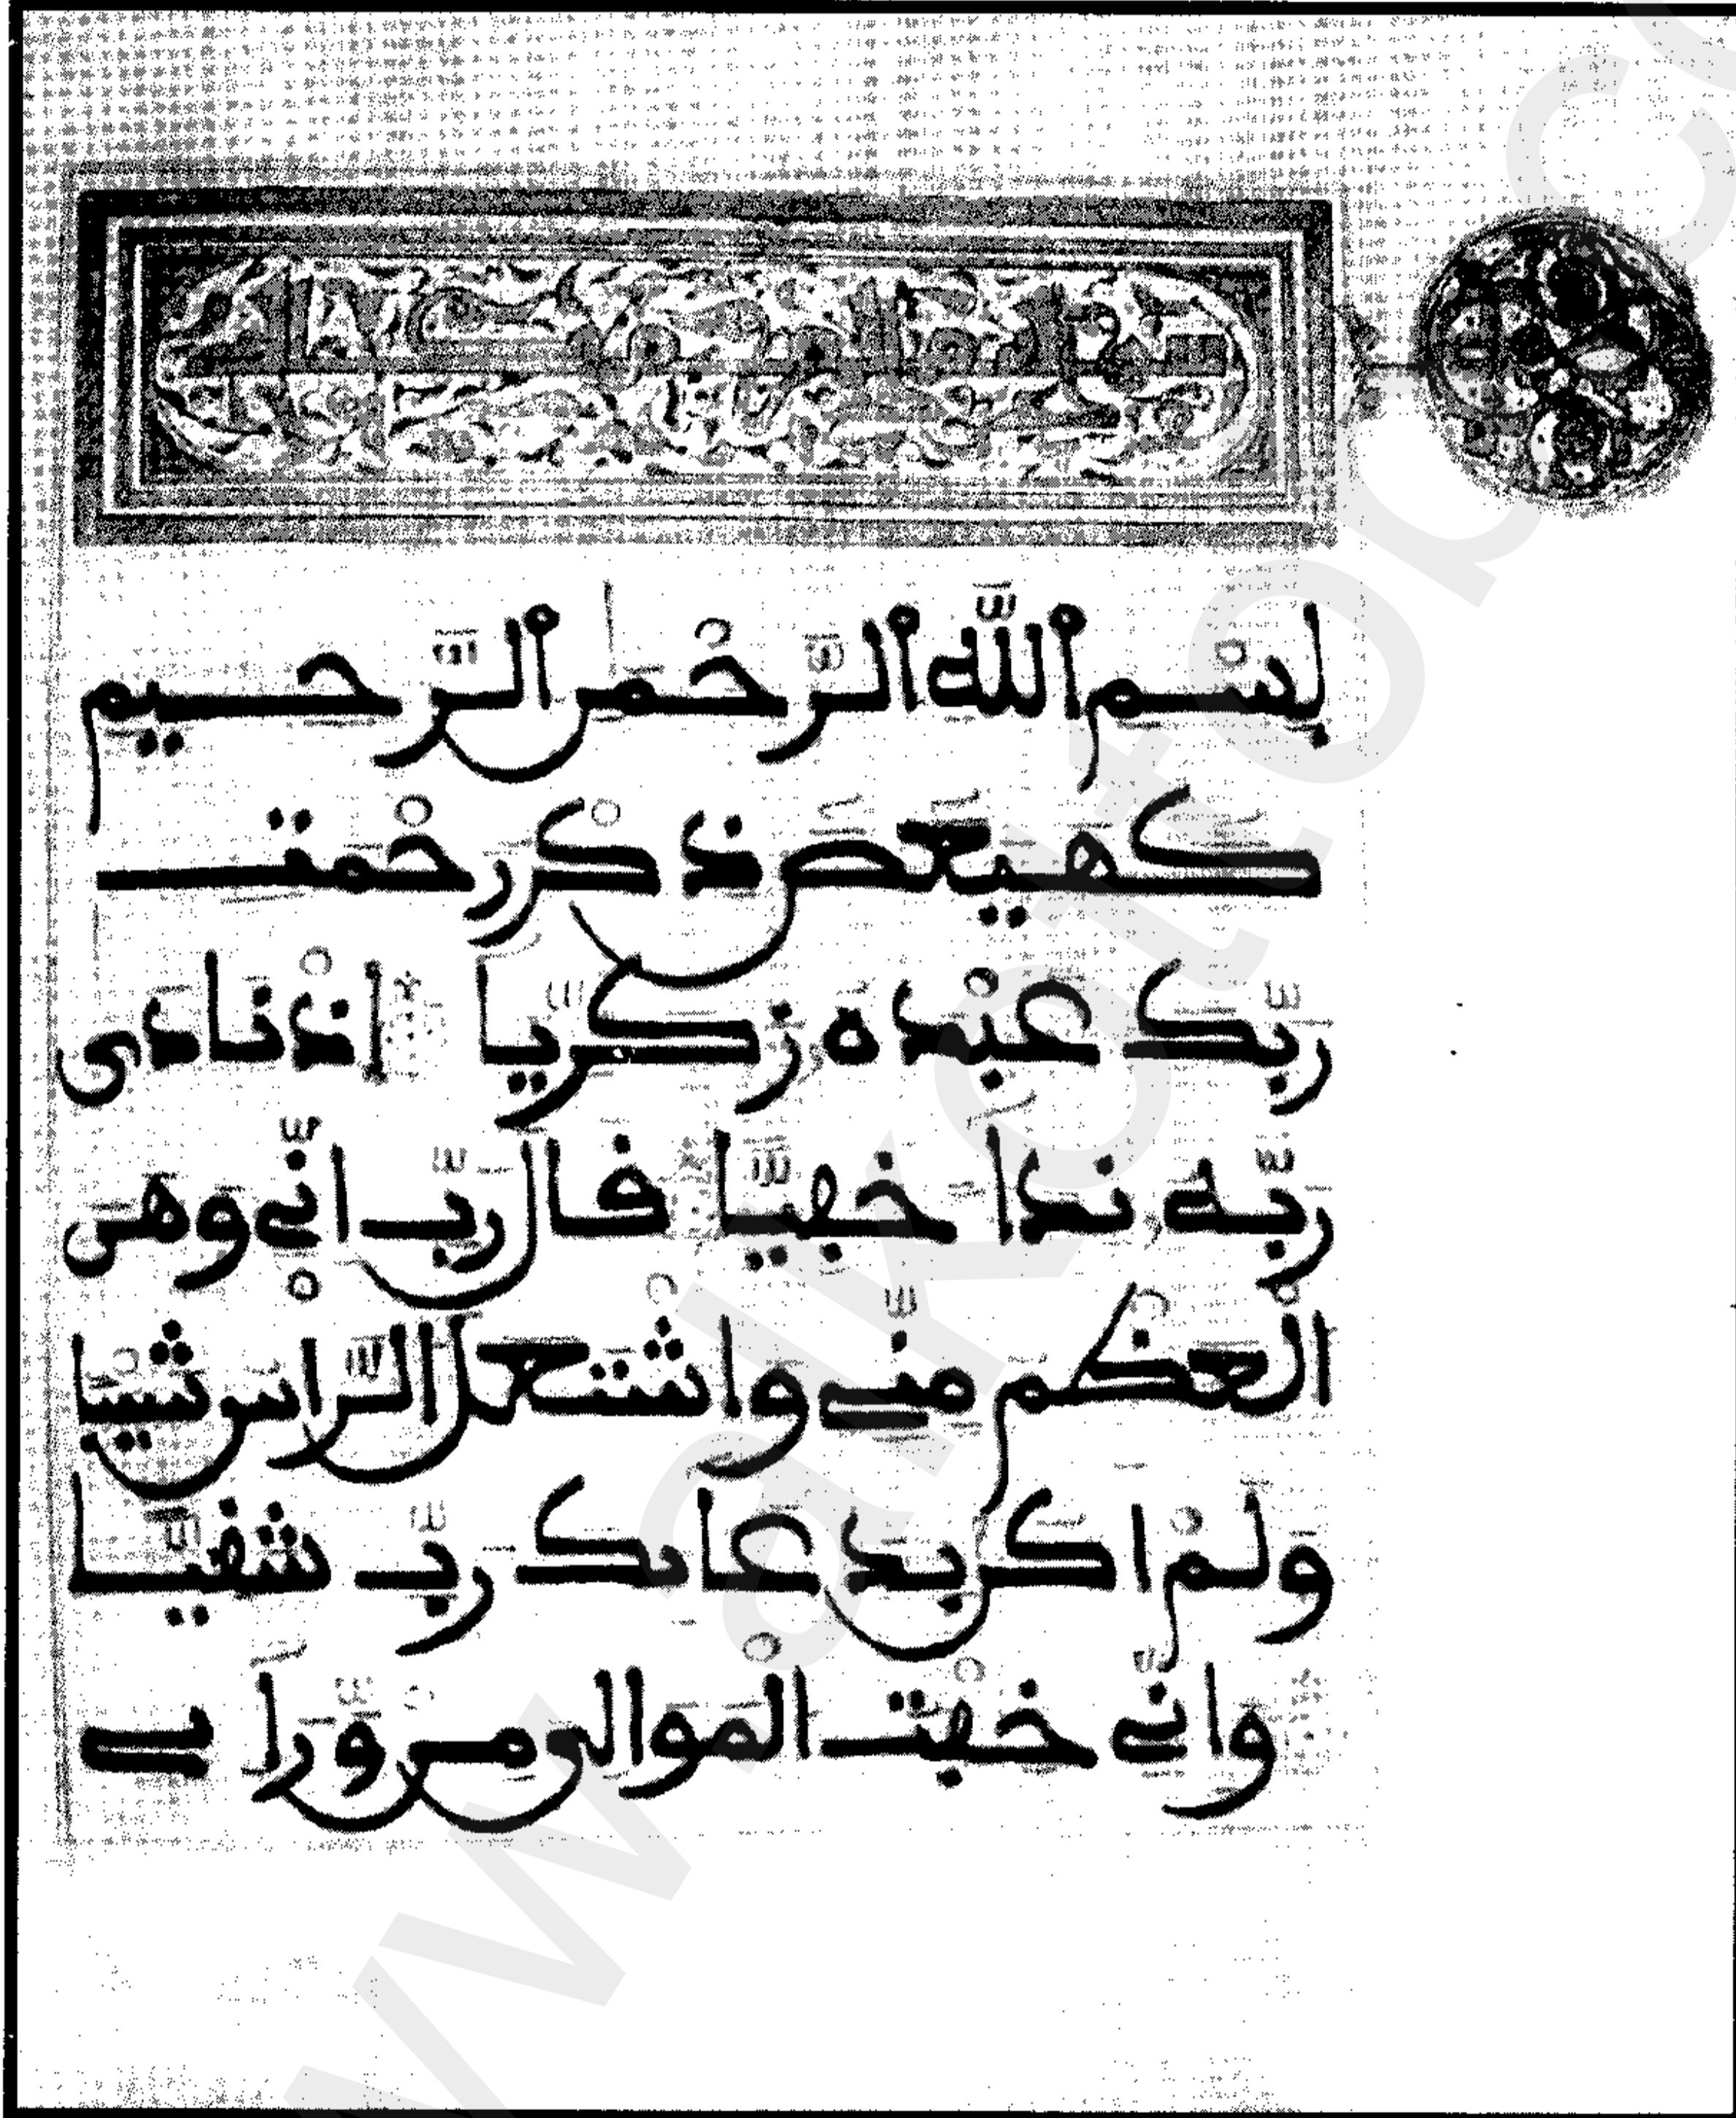 بسم الله الرحمن الرحيم
كهيعص ذكر رحمت
ربك عبده زكريا اذ نادى
ربه ندا خفيا قال رب اني وهن
العظم مني واشتعل الراس شيبا
ولم اكن بدعائك رب شقيا
واني خفت الموالي من وراي